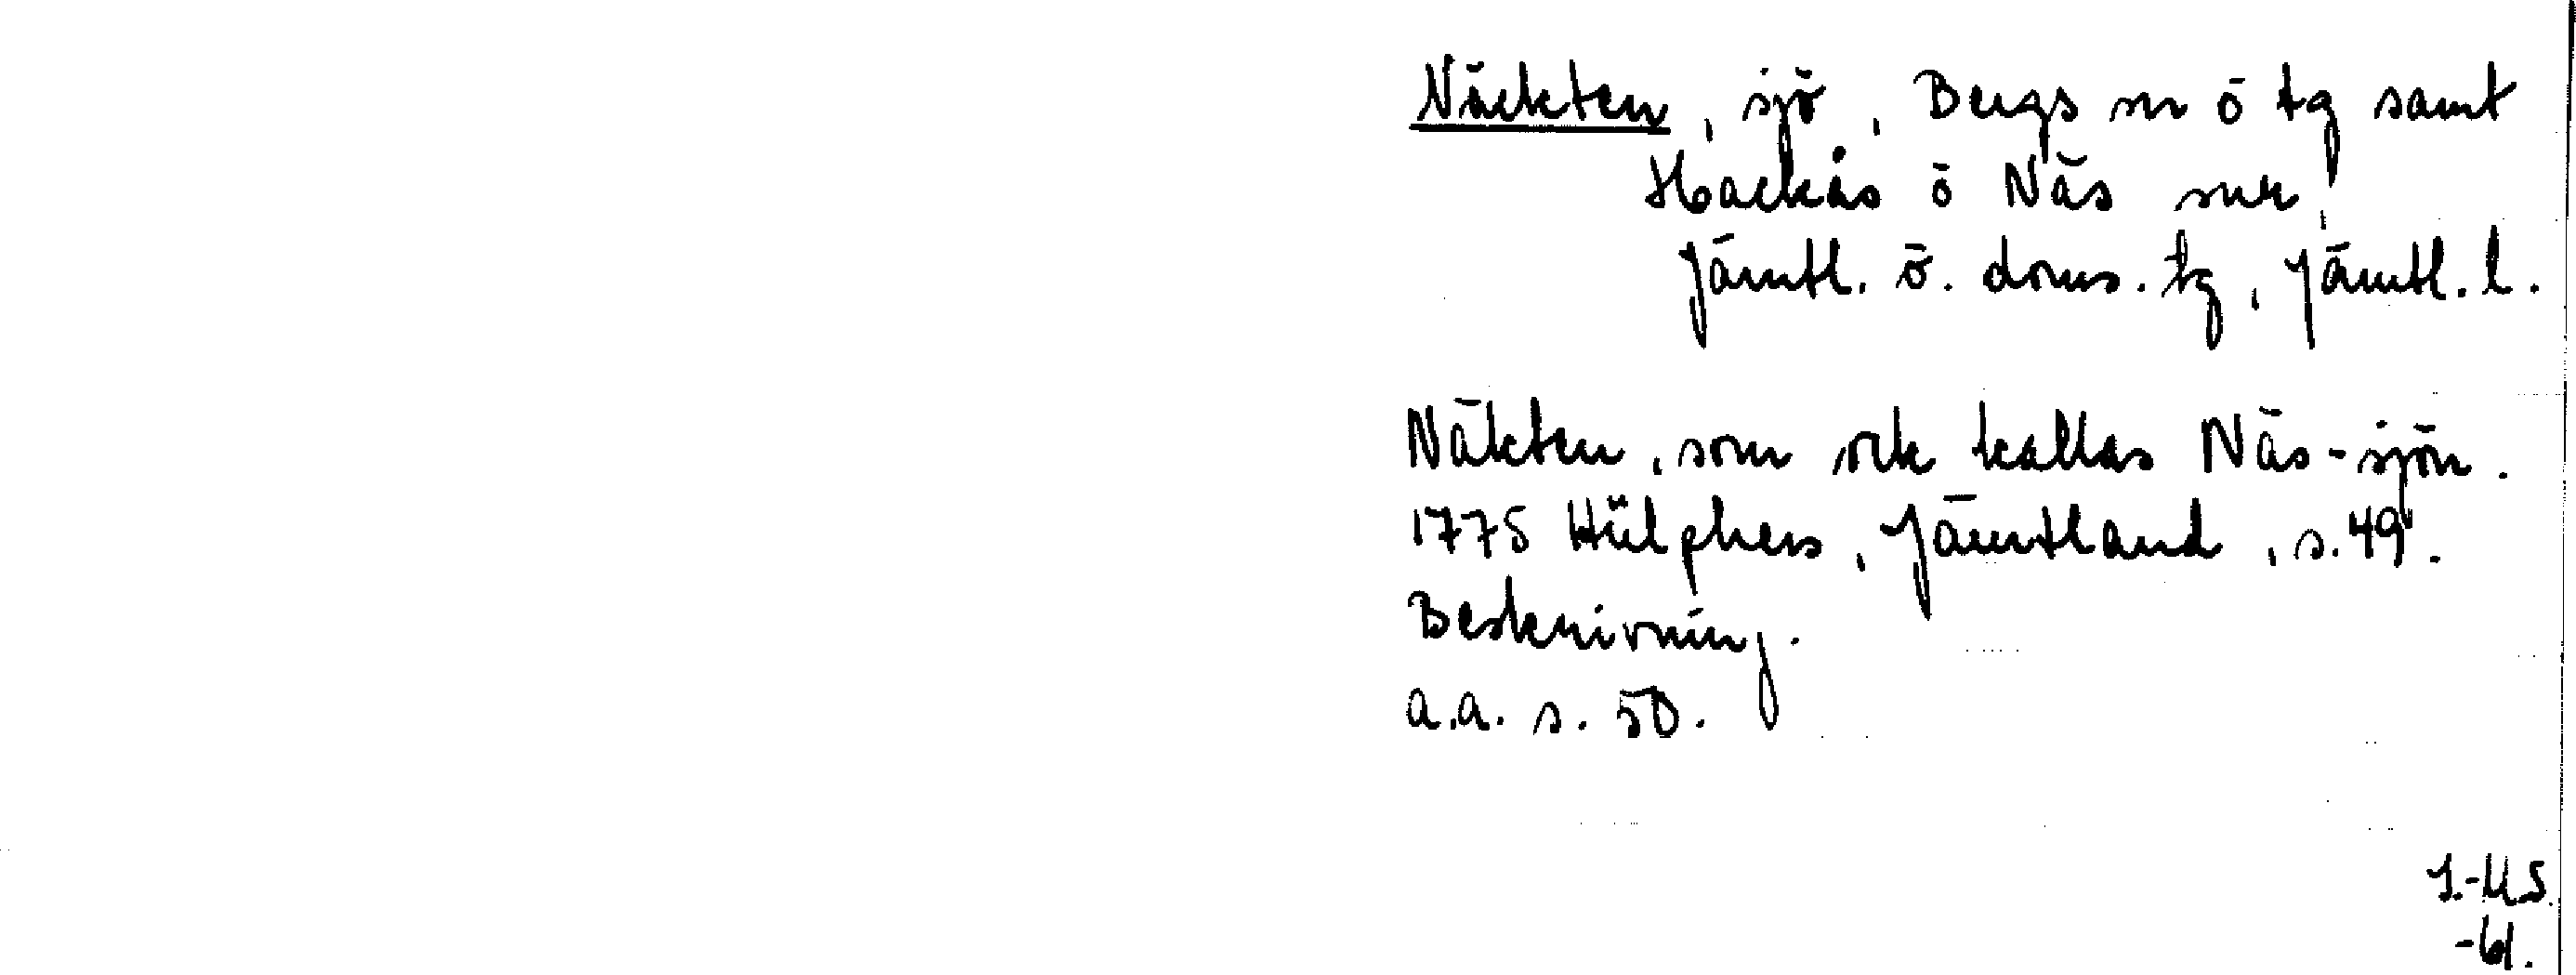 Näckten, sjö, Bergs sn ö tg samt
Hackås ö Näs snr,
Jämtl. ö. doms. tg, Jämtl. l.
Näkten, som ock kallas Näs-sjön.
1775 Hülphers, Jämtland, s. 49.
Beskrivning.
a.a. s. 50.
I.-M.S.
-61.